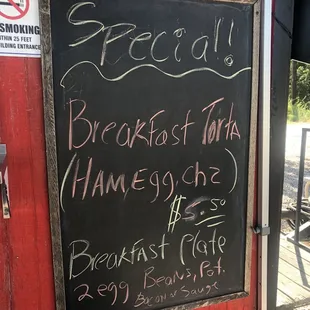 SMOKING
WITHIN 25 FEET
BUILDING ENTRANCE
Special!!
Breakfast Torta
(Ham, Egg, chz)
$5.50
Breakfast Plate
2 egg Beans, Pot.
Bacon or Sausge